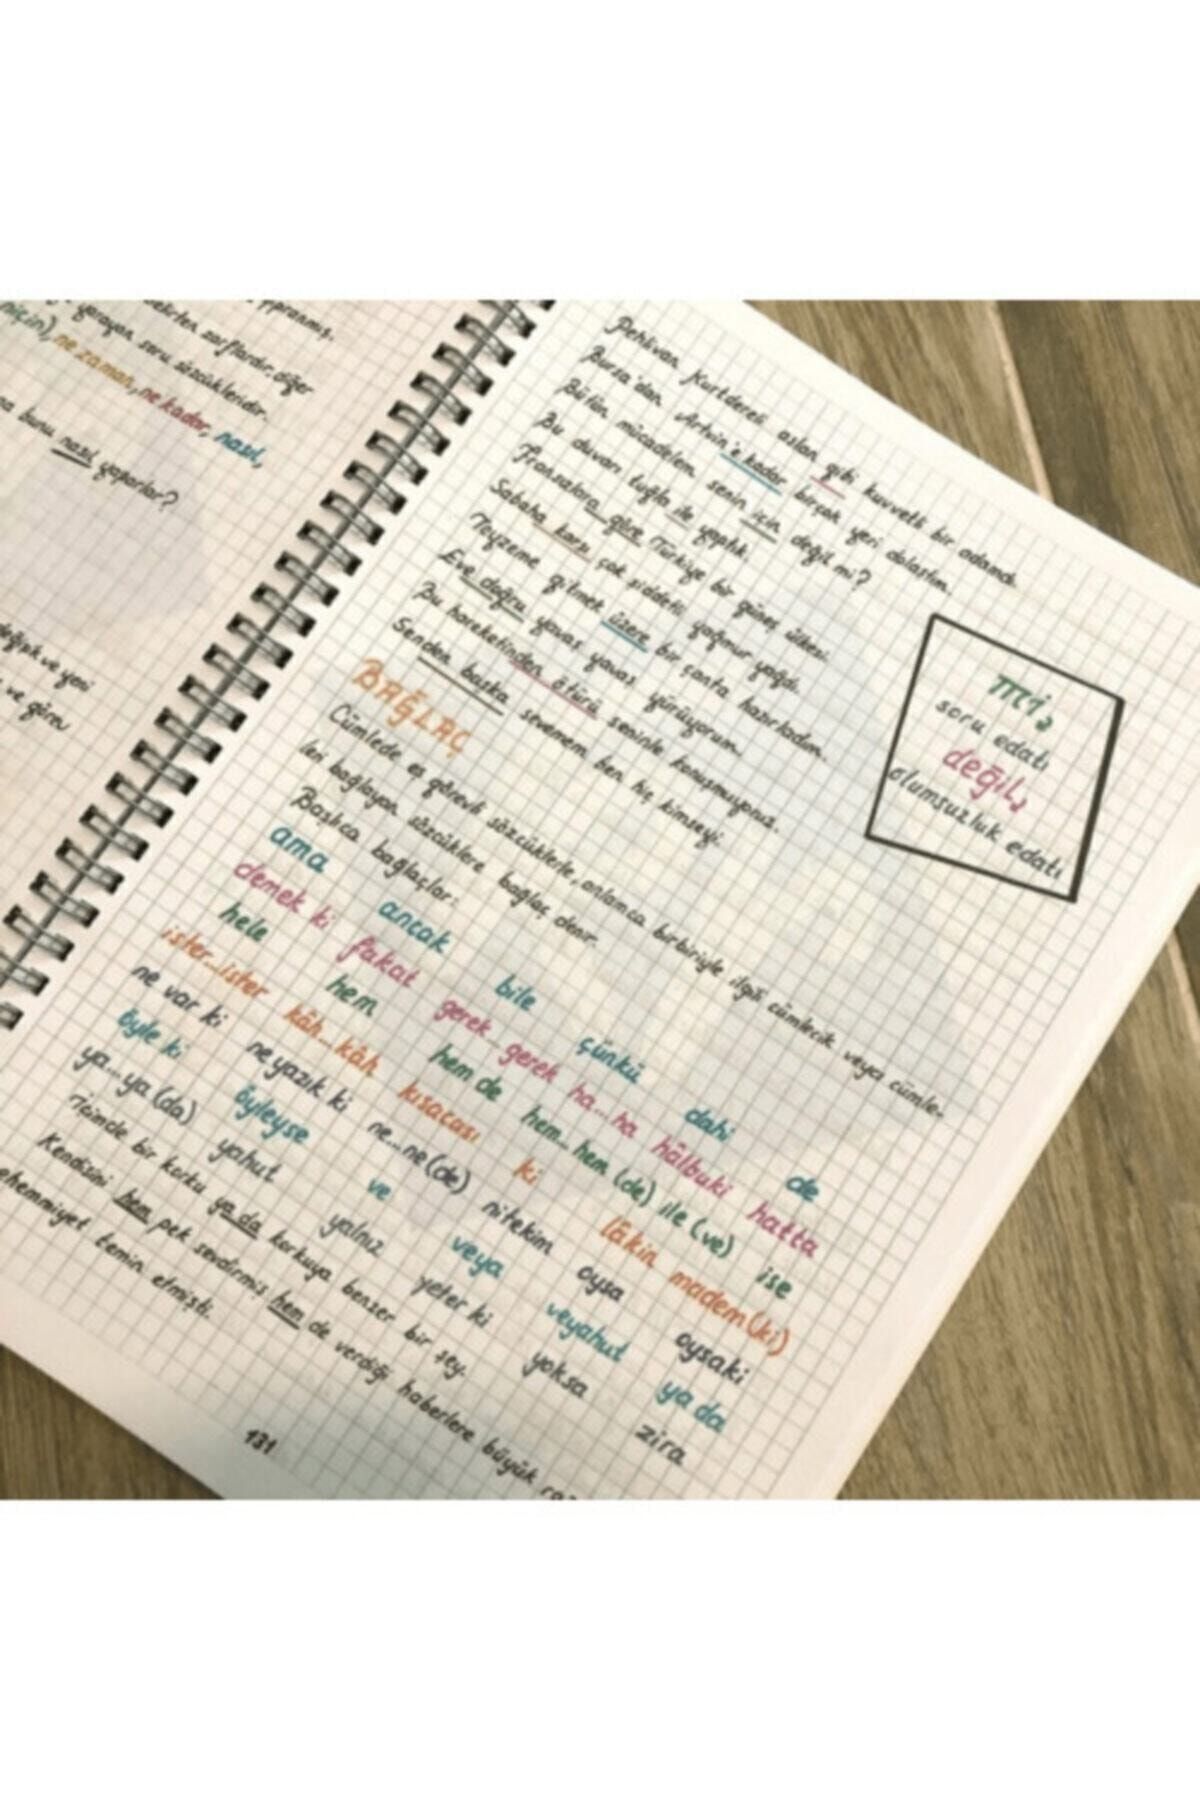 niçin), ne zaman, ne kadar, nasıl,
bunu nasıl yaparlar?
Pehlivan, Kurtdereli aslan gibi kuvvetli bir adamdı.
Bursa'dan Artvin'e kadar birçok yeri dolaştım.
Bütün mücadelem senin için değil mi?
Bu duvarı tuğla ile yaptık.
göre Türkiye bir güneş ülkesi.
Sabaha karşı çok şiddetli yağmur yağdı.
Teyzeme gitmek üzere bir çanta hazırladım.
Eve doğru yavaş yavaş yürüyorum.
Bu hareketinden ötürü seninle konuşmuyoruz.
Senden başka sevemem ben hiç kimseyi.
mi,
soru edatı
değil,
olumsuzluk edatı
BAĞLAÇ
Cümlede eş görevli sözcüklerle, anlamca birbiriyle ilgili cümlecik veya cümle-
leri bağlayan sözcüklere bağlaç denir.
Başlıca bağlaçlar:
ama ancak bile çünkü dahi de
demek ki fakat gerek...gerek ha...ha hâlbuki hatta
hele hem hem de hem...hem (de) ile (ve) ise
ister...ister kâh...kâh kısacası ki lâkin madem(ki)
ne var ki ne yazık ki ne...ne (de) nitekim oysa oysaki
öyle ki öyleyse ve veya veyahut ya da
ya...ya (da) yahut yalnız yeter ki yoksa zira
İçimde bir korku ya da korkuya benzer bir şey.
Kendisini hem pek sevdirmiş hem de verdiği haberlere büyük
ehemmiyet temin etmişti.
131